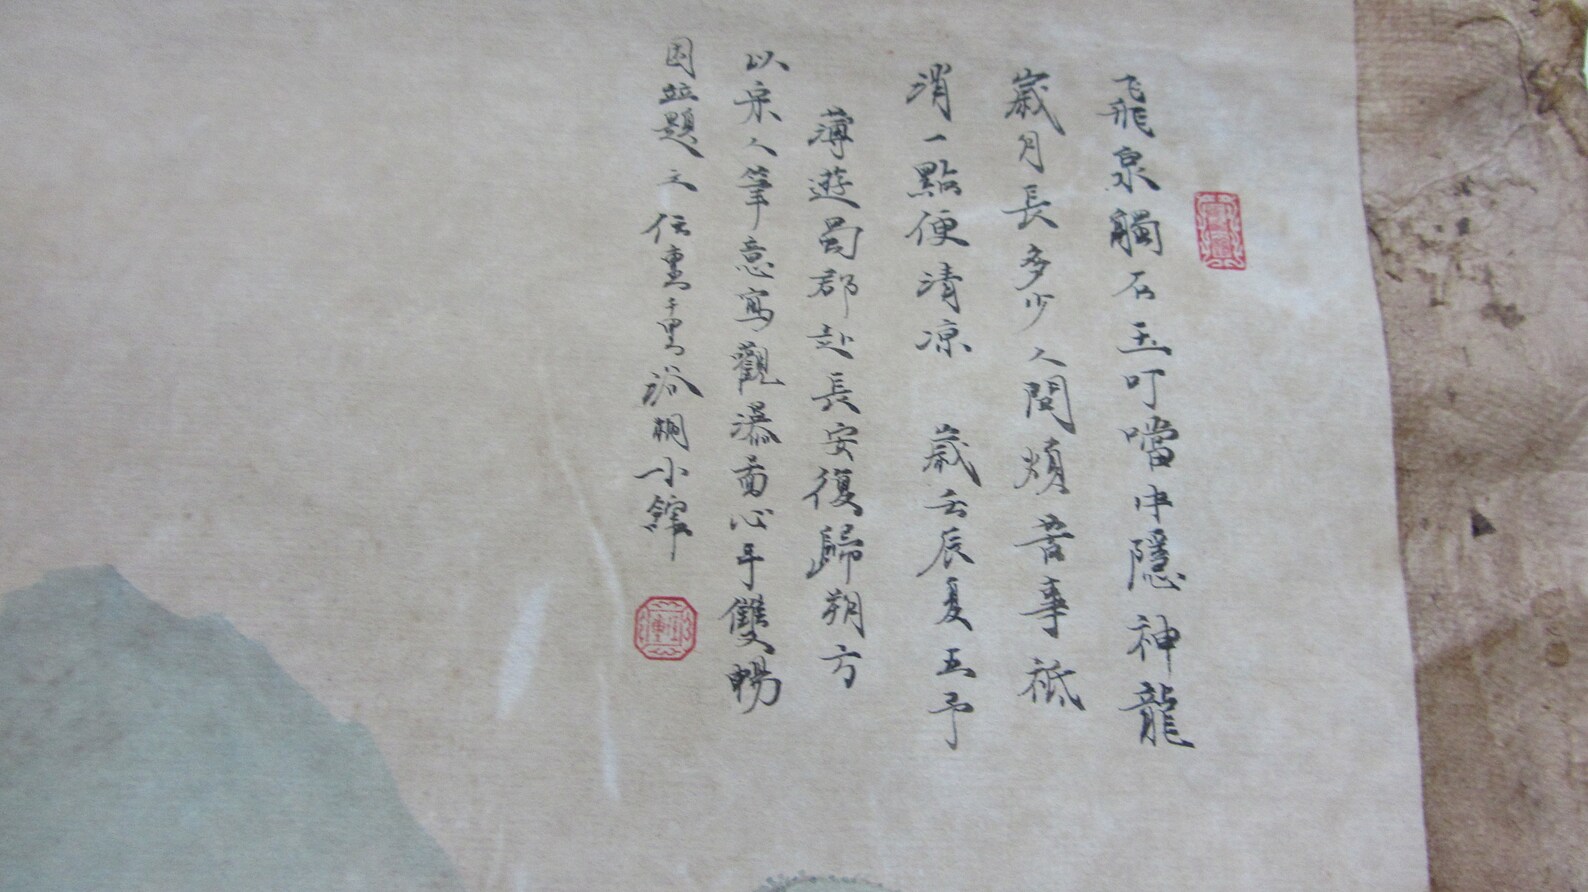 飛泉觸石玉叮噹中隱神龍
歲月長多少人間煩苦事祗
消一點便清凉 歲壬辰夏五予
薄遊蜀郡赴長安復歸朔方
以宋人筆意寫觀瀑圖心手雙暢
因並題之任重千里浴桐小館